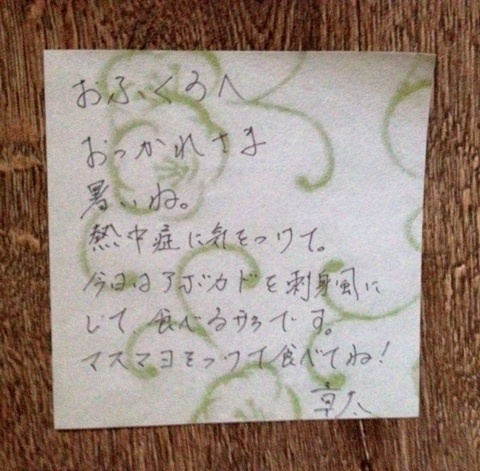 おふくろへ
おつかれさま
暑いね。
熱中症に気をつけて。
今日はアボカドを刺身風に
して、食べるサラです。
マスマヨをつけて食べてね!
京太